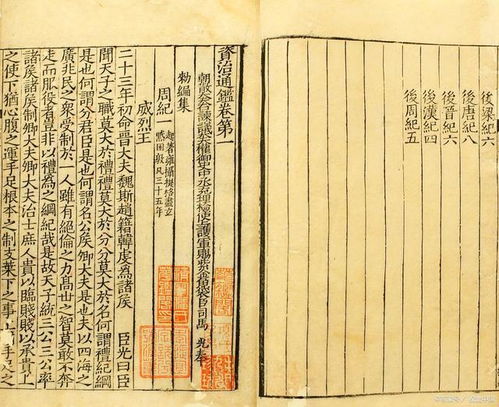 後梁紀六
後唐紀八
後晉紀六
後漢紀四
後周紀五
資治通鑑卷第一
朝散大夫右諫議大夫權御史中丞充理檢使上護軍賜紫金魚袋臣司馬 光奉
勑編集
周紀一
起著雍攝提格盡玄
黓困敦凡三十五年
威烈王
二十三年初命晉大夫魏斯趙籍韓虔為諸侯 臣光曰臣
聞天子之職莫大於禮禮莫大於分分莫大於名何謂禮紀綱
是也何謂分君臣是也何謂名公侯卿大夫是也夫以四海之
廣兆民之衆受制於一人雖有絕倫之力高世之智莫敢不奔
走而服役者豈非以禮為之綱紀哉是故天子統三公三公率
諸侯諸侯制卿大夫卿大夫治士庶人貴以臨賤賤以承貴上
之使下猶心腹之運手足根本之制支葉下之事上 手足之